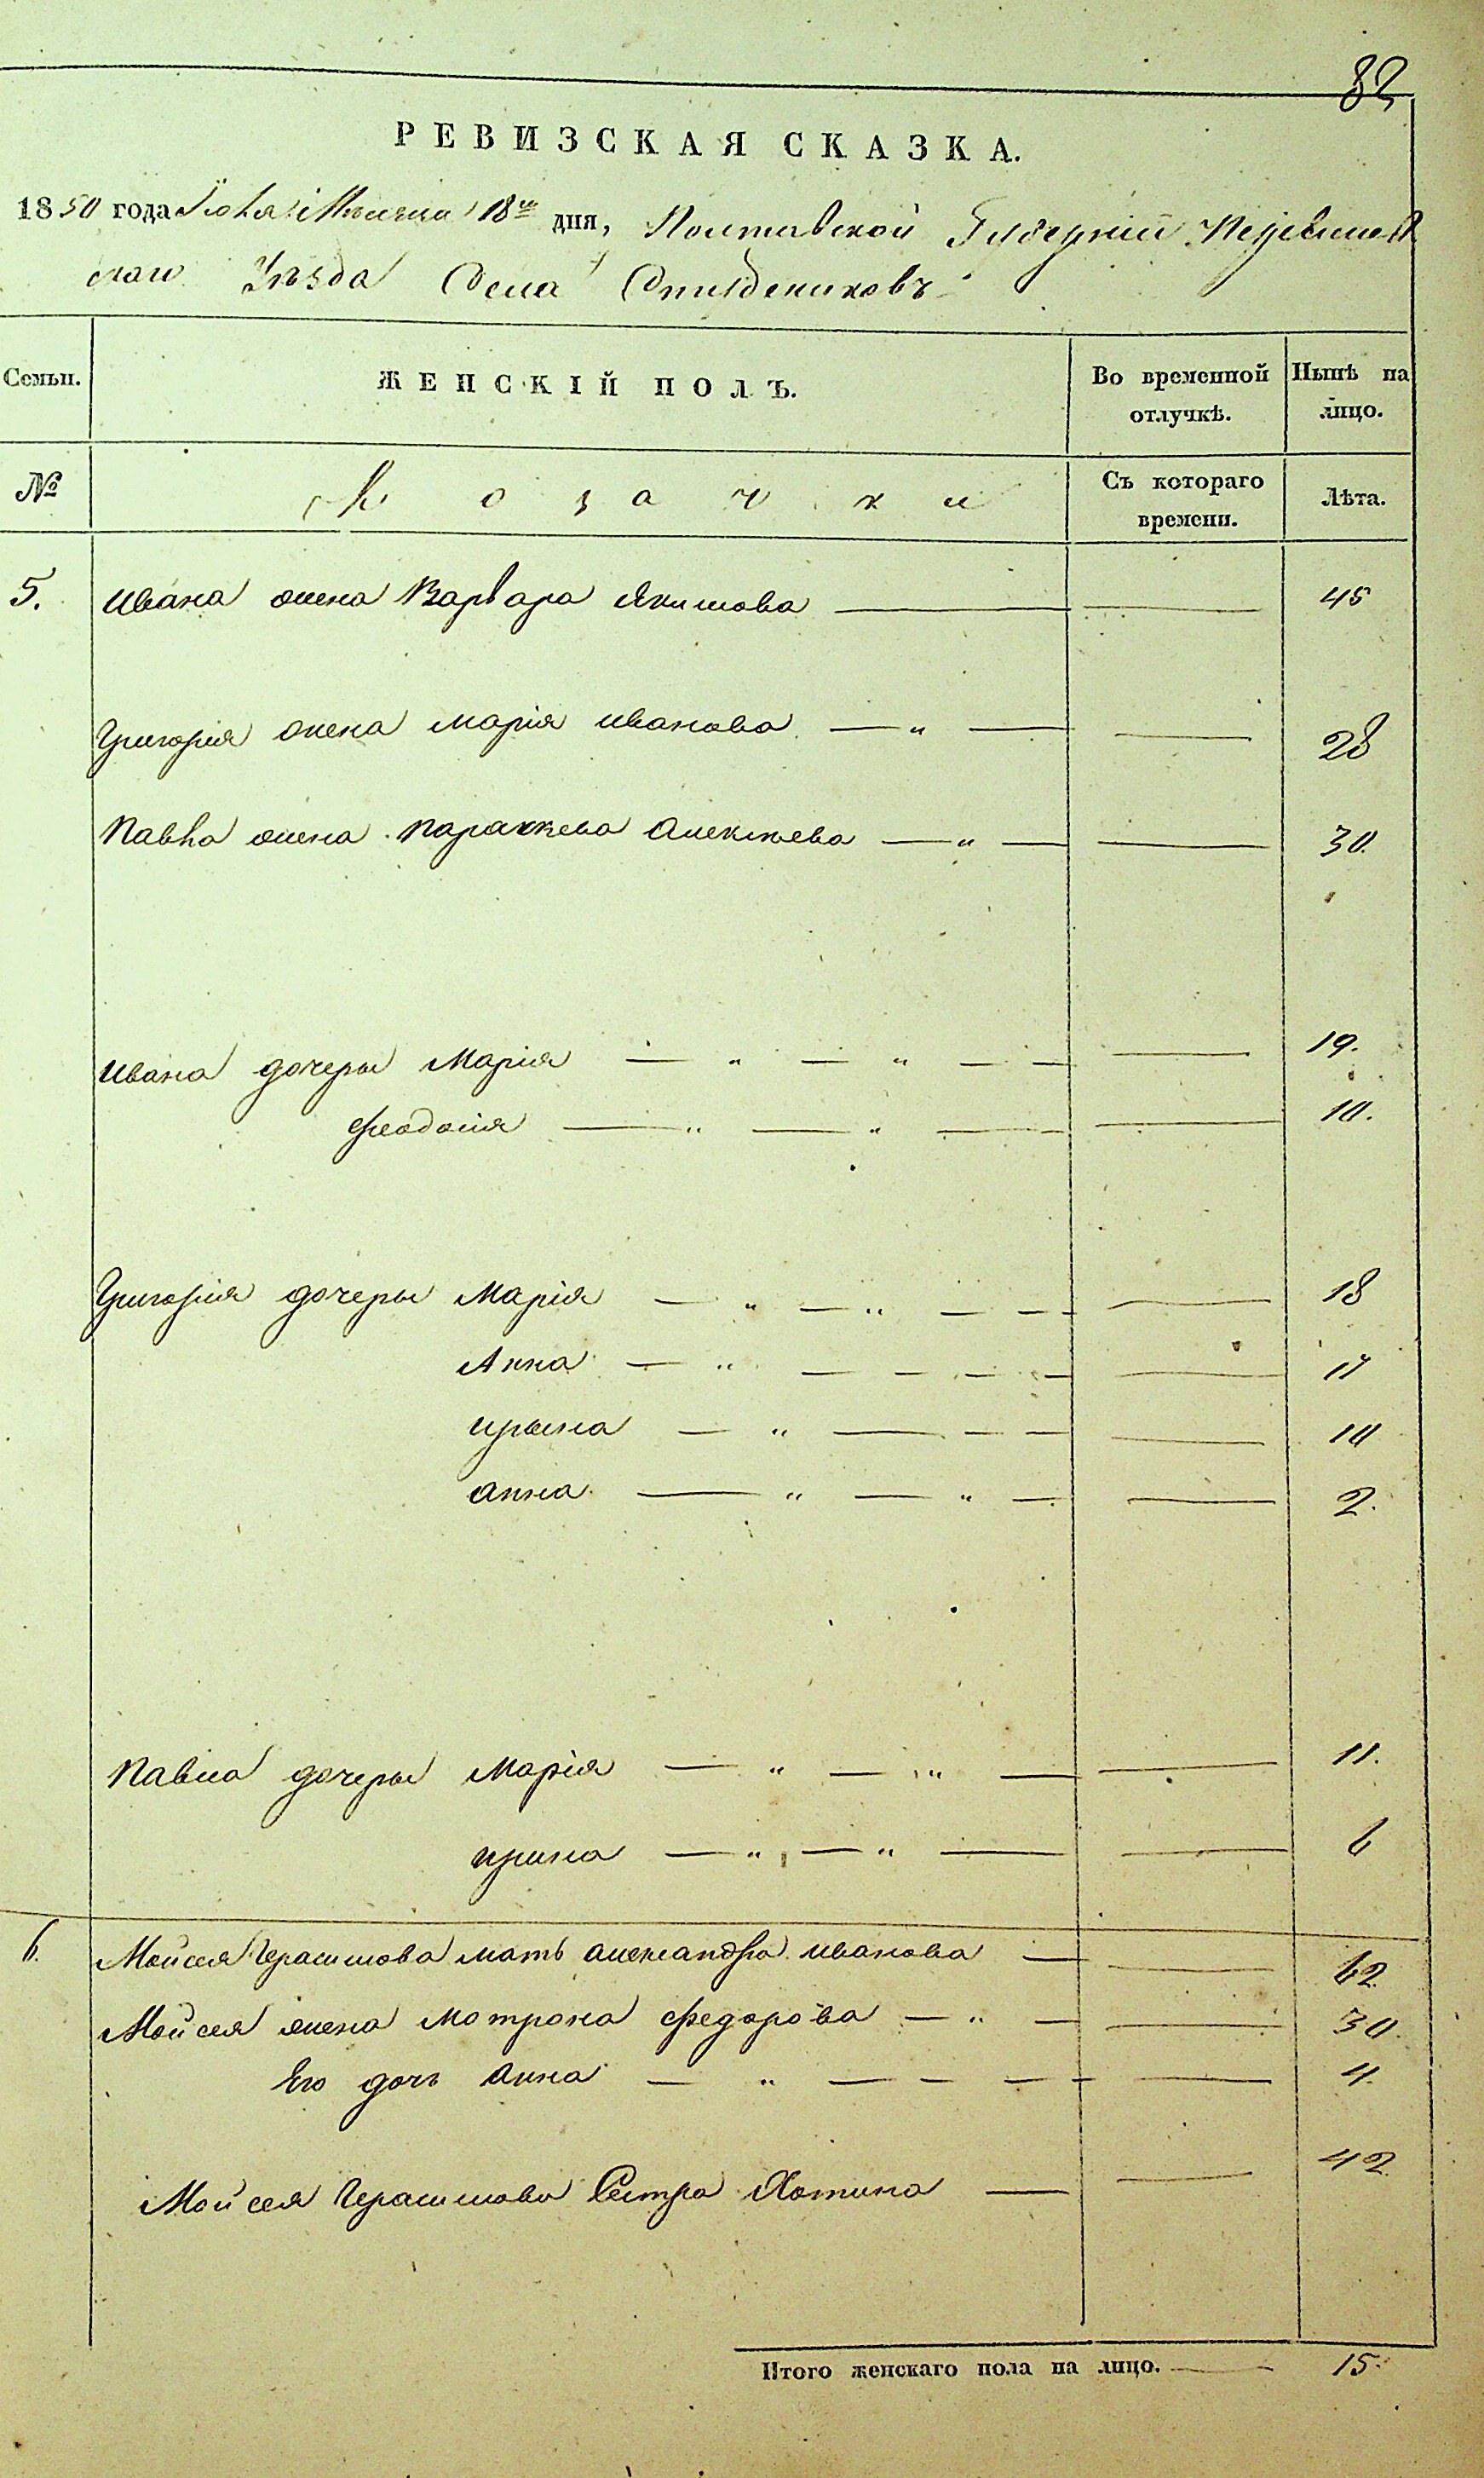 82
РЕВИЗСКАЯ СКАЗКА.
1850 года Іюля мѣсяца 18го дня, Полтавской Губерніи
скаго Уѣзда Села Студениковъ
Семьи. ЖЕНСКІЙ ПОЛЪ. Во временной отлучкѣ. Нынѣ на лицо.
№ Козачки Съ котораго времени. Лѣта.
5. Ивана жена Варвара Якимова 45
Григорія жена Марія Иванова — „ — 28
Павла жена Параскева Алексѣева — „ — 30.
Ивана дочеры Марія — „ — „ — — 19.
Феодосія — „ — „ — 10.
Григорія дочеры Марія — „ — „ — — 18
Анна — „ — — — — 17
Ирына — „ — — — 10
Анна — „ — „ — 2.
Павла дочеры Марія — „ — „ — 11.
Ирина — „ — „ — 6
6. Мойсея Герасимова мать Александра Иванова — 62
Мойсея жена Мотрона Федорова — „ — 30.
Его дочь Анна — „ — — — 4.
Мойсея Герасимова Сестра 42
Итого женскаго пола на лицо. — 15.